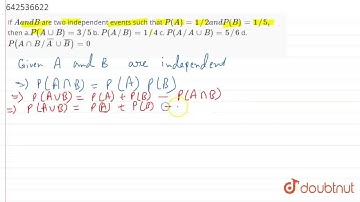 642536622
If AandB are two independent events such that P(A) = 1/2andP(B) = 1/5,
then a.P(A ∪ B) = 3/5 b. P(A/B) = 1/4 c. P(A/A ∪ B) = 5/6 d.
P(A ∩ B/A̅ ∪ B̅) = 0
Given A and B are independent
⇒ P(A∩B) = P(A) P(B)
⇒ P(A∪B) = P(A) + P(B) − P(A∩B)
⇒ P(A∪B) = P(A) + P(B) −
doubtnut